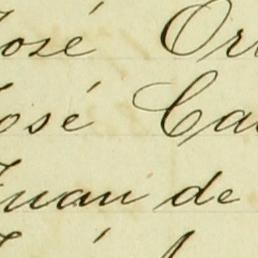 José Or
José Ca
Juan de